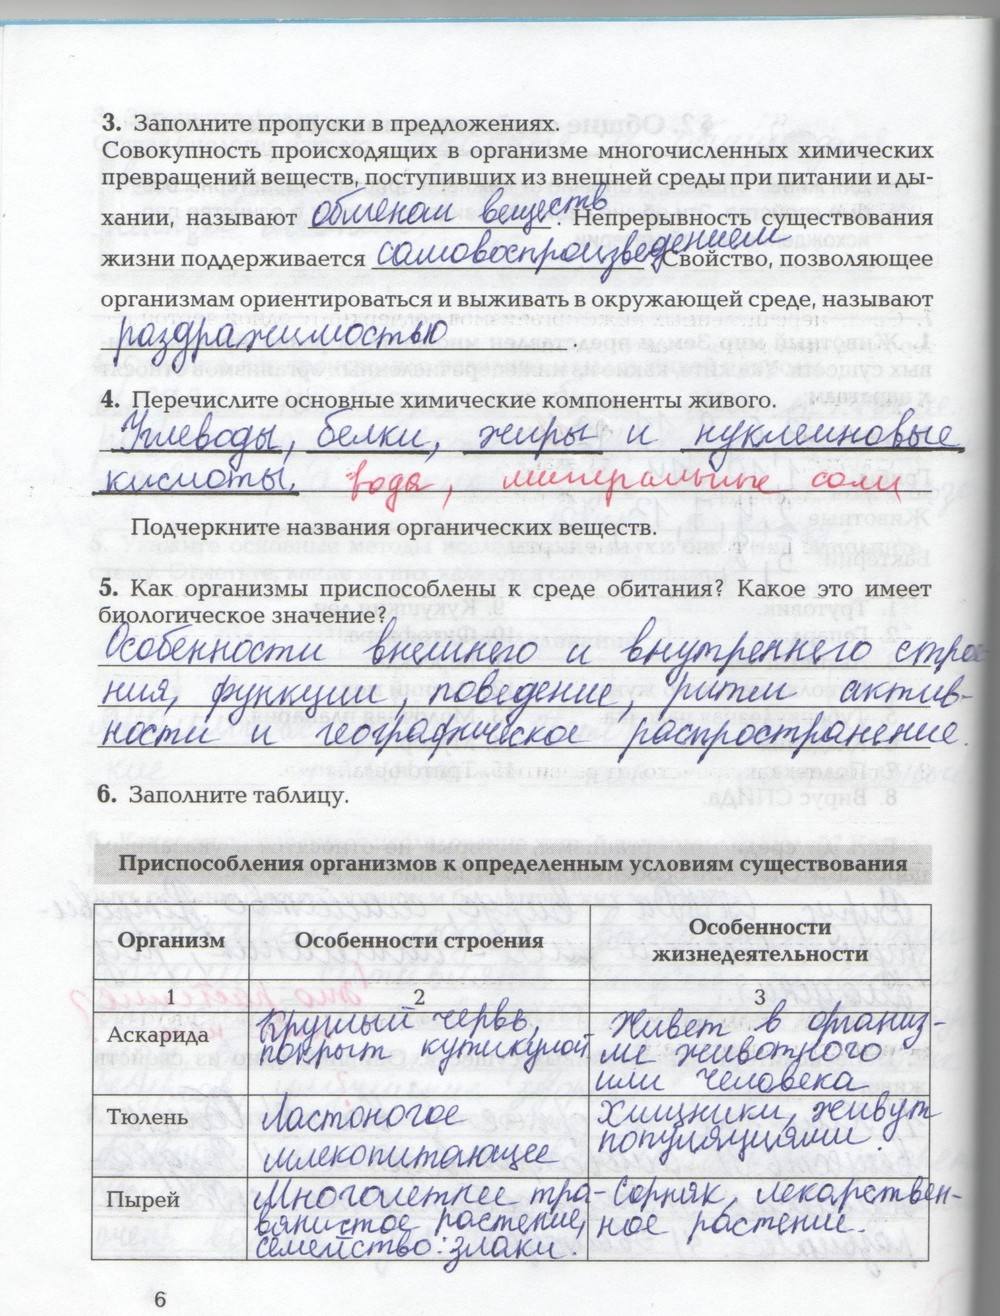 3. Заполните пропуски в предложениях.
Совокупность происходящих в организме многочисленных химических
превращений веществ, поступивших из внешней среды при питании и ды-
хании, называют обменом веществ. Непрерывность существования
жизни поддерживается самовоспроизведением. Свойство, позволяющее
организмам ориентироваться и выживать в окружающей среде, называют
раздражимостью.
4. Перечислите основные химические компоненты живого.
Углеводы, белки, жиры и нуклеиновые
кислоты. вода, минеральные соли
Подчеркните названия органических веществ.
5. Как организмы приспособлены к среде обитания? Какое это имеет
биологическое значение?
Особенности внешнего и внутреннего строе-
ния, функции, поведение, ритм актив-
ности и географическое распространение.
6. Заполните таблицу.
Приспособления организмов к определенным условиям существования
Организм Особенности строения Особенности
жизнедеятельности
1 2 3
Аскарида Круглый червь, Живет в организ-
покрыт кутикулой ме животного
или человека
Тюлень Ластоногое Хищники, живут
млекопитающее популяциями.
Пырей Многолетнее тра- Сорняк, лекарствен-
вянистое растение, ное растение.
семейство: злаки
6